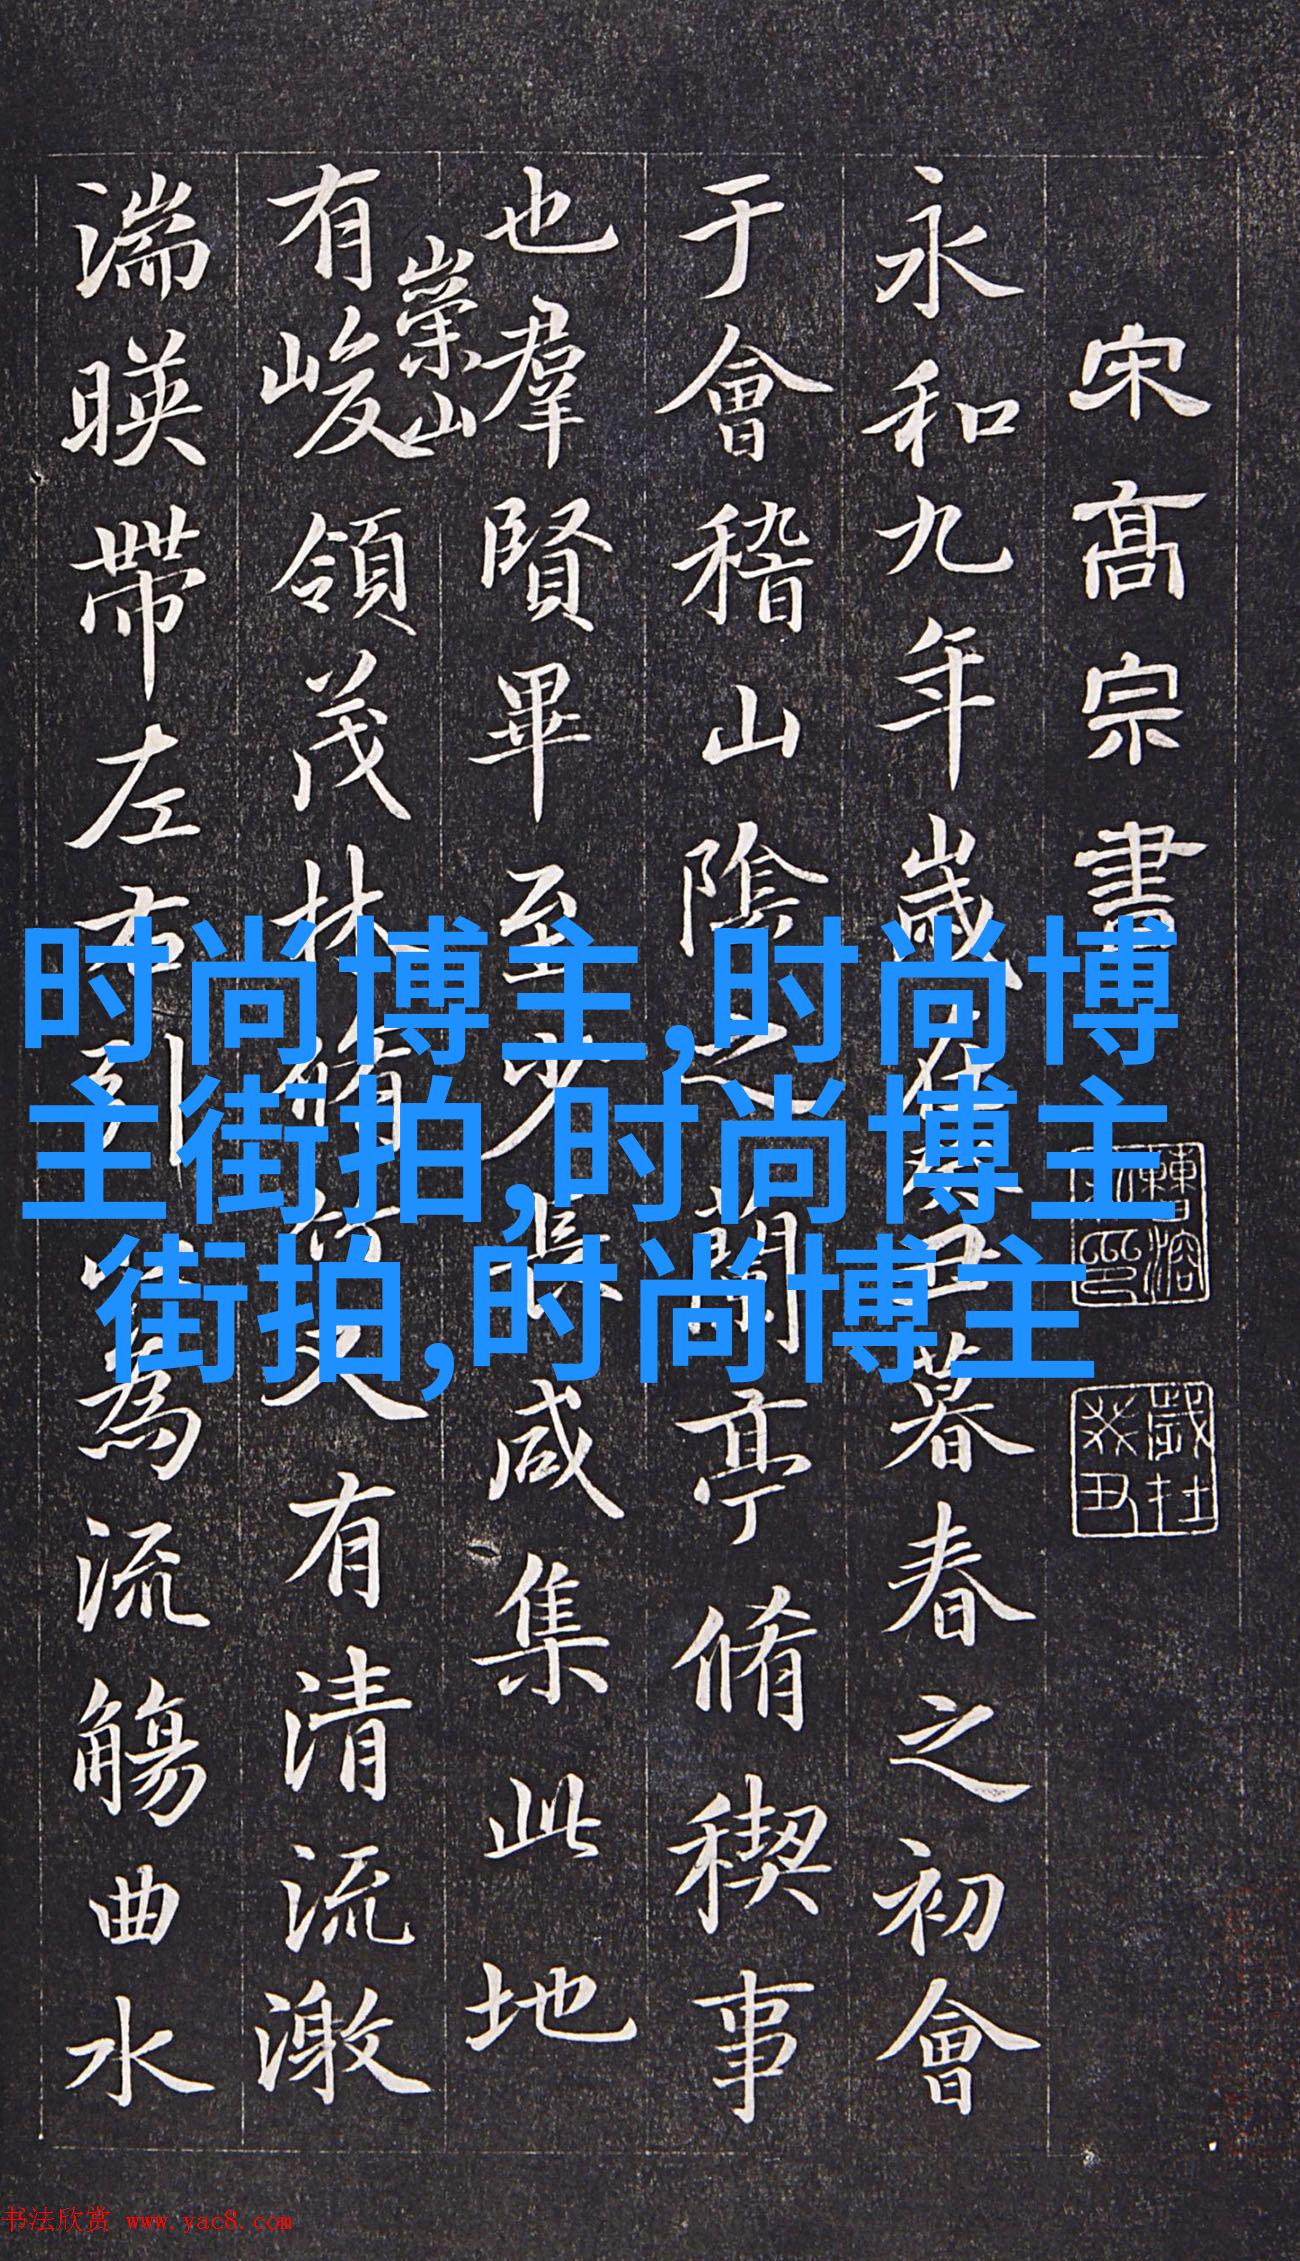 宋高宗書
永和九年歲在癸丑暮春之初會
于會稽山陰之蘭亭脩稧事
也羣賢畢至少長咸集此地
有崇山峻領茂林脩竹又有清流激
湍暎帶左右引以為流觴曲水
時尚博主,时尚博
主街拍,时尚博主
街拍,时尚博主
歲在癸丑
书法欣赏 www.yac8.com